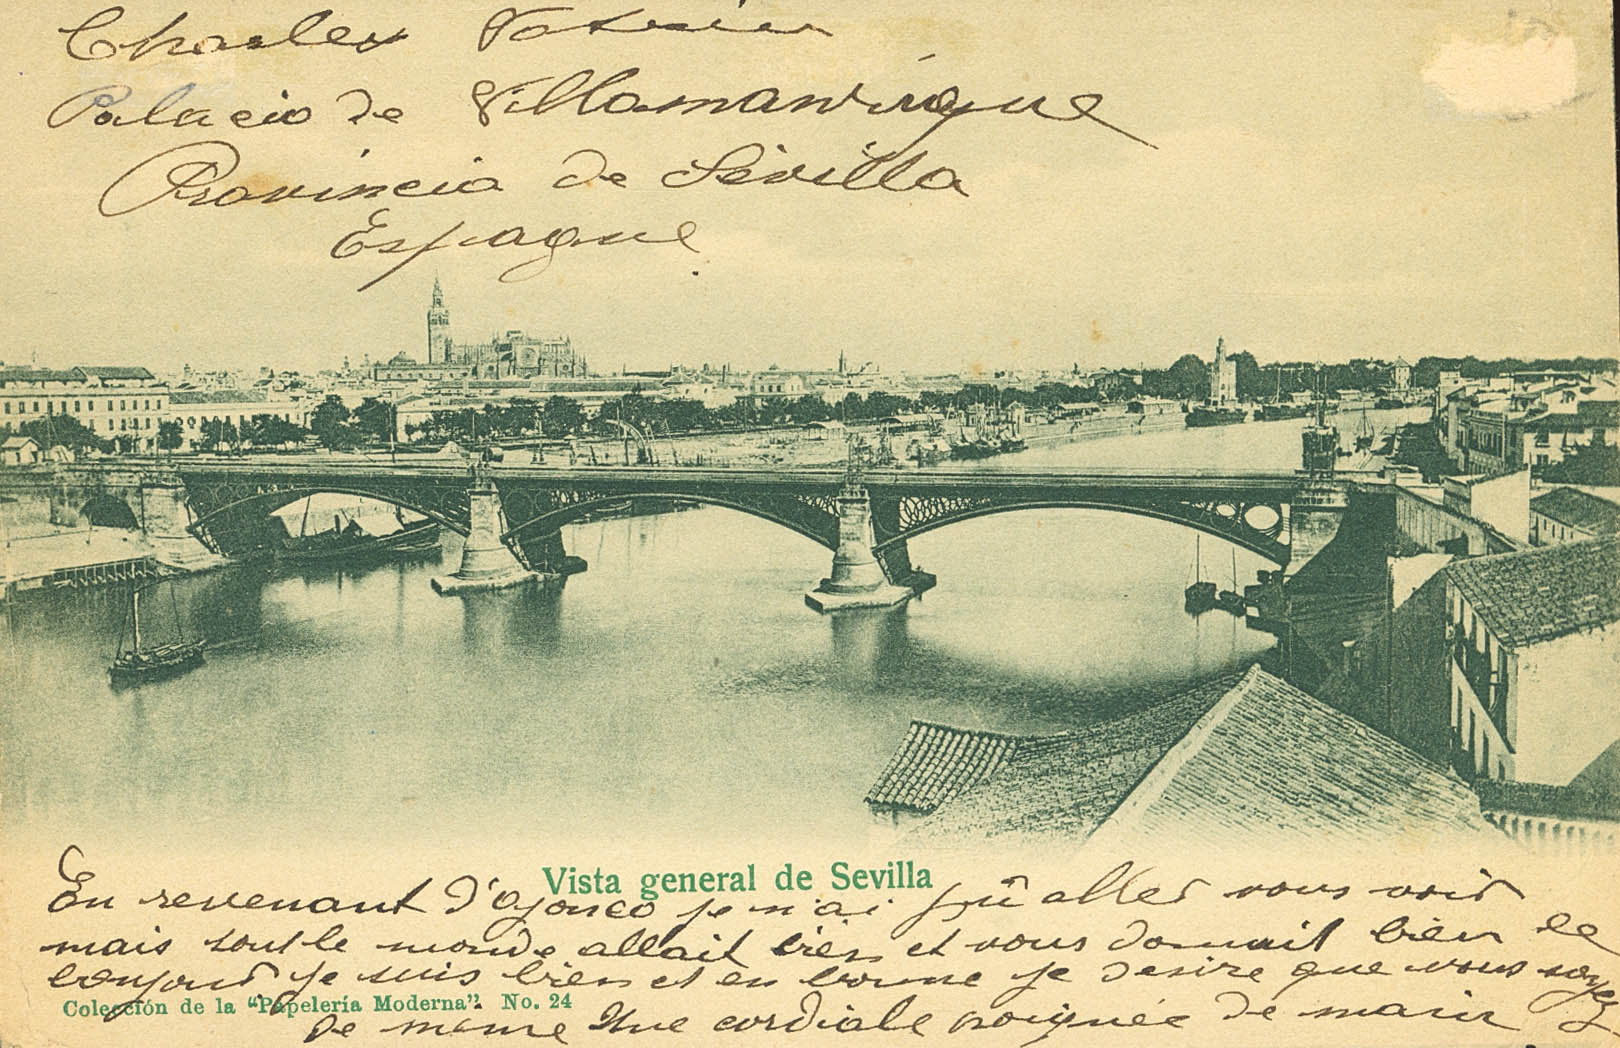 Charles
Palacio de Villamanrique
Provincia de Sevilla
Espagne
Vista general de Sevilla
En revenant d'ajonco je n'ai pû aller vous voir
mais tout le monde allait bien et vous donnait bien le
bonjour je suis bien et en bonne je desire que vous soyez
Colección de la "Papelería Moderna". No. 24
de meme Une cordiale poignée de main